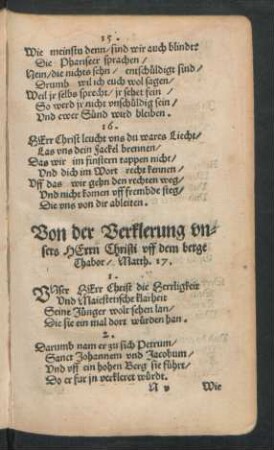 15.
Wie meinstu denn/ sind wir auch blindt?
Die Phariseer sprachen/
Nein/ die nichts sehn/ entschüldigt sind/
Drumb wil ich euch wol sagen/
Weil jr selbs sprecht/ jr sehet fein/
So werd jr nicht vnschüldig sein/
Vnd ewer Sünd wird bleiben.
16.
HErr Christ leucht vns du wares Liecht/
Las vns dein Fackel brennen/
Das wir im finstern tappen nicht/
Vnd dich im Wort recht kennen/
Vff das wir gehn den rechten weg/
Vnd nicht komen vff frembde steg/
Die vns von dir ableiten.
Von der Verklerung vn-
sers HErrn Christi vff dem berge
Thabor/ Matth. 17.
1.
VNser HErr Christ die Herrligkeit
Vnd Maiestetische klarheit
Seine Jünger wolt sehen lan/
Die sie ein mal dort würden han.
2.
Darumb nam er zu sich Petrum/
Sanct Johannem vnd Jacobum/
Vnd vff ein hohen Berg sie führt/
Do er für jn verkleret würdt.
N v Wie